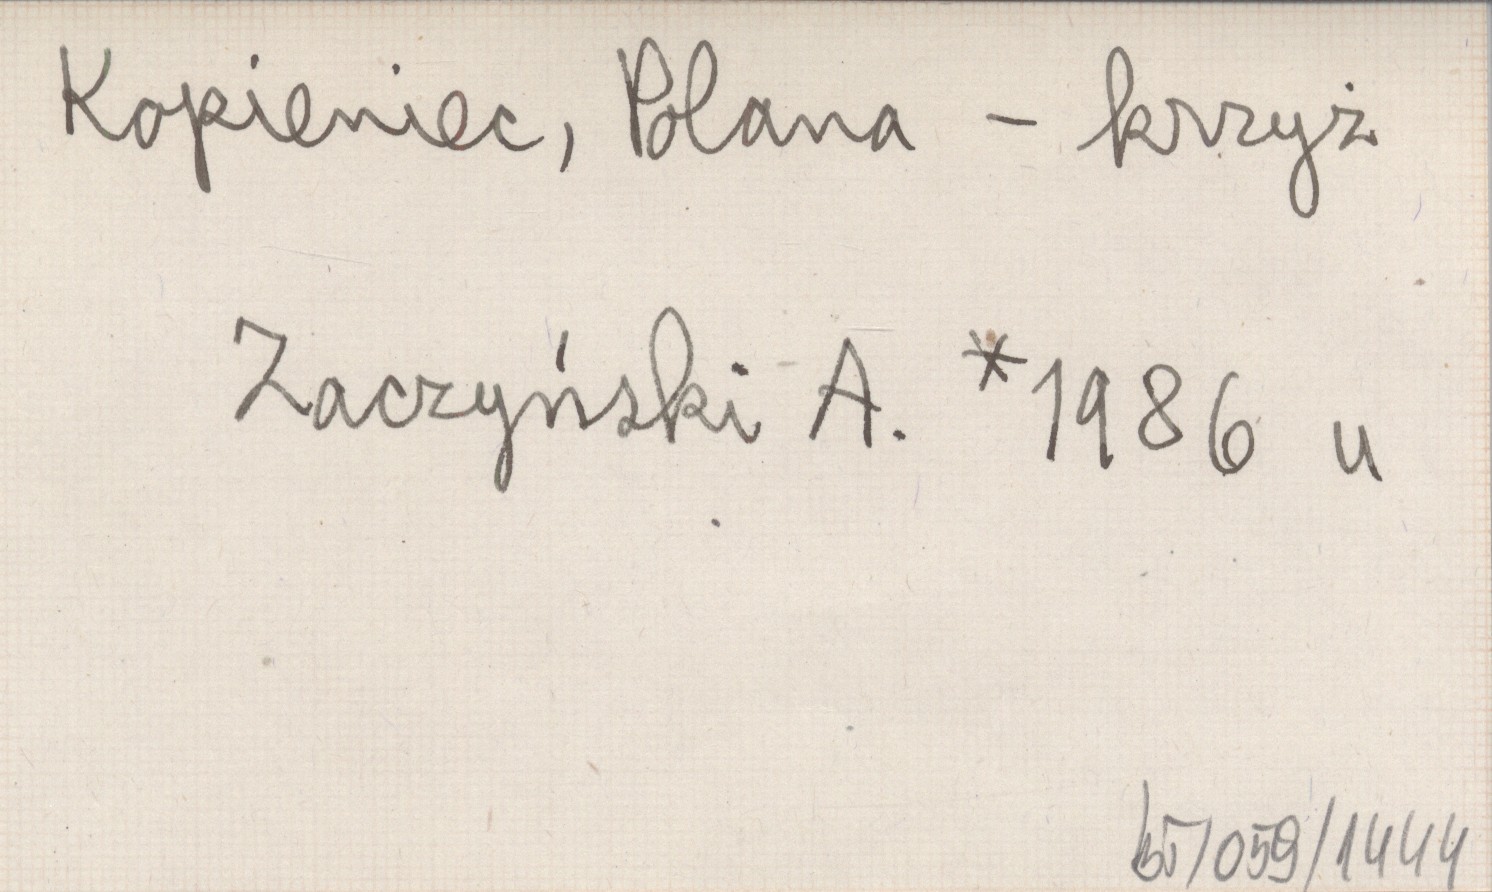 Kopieniec, Polana - krzyż
Zaczyński A. *1986 u
/059/1444